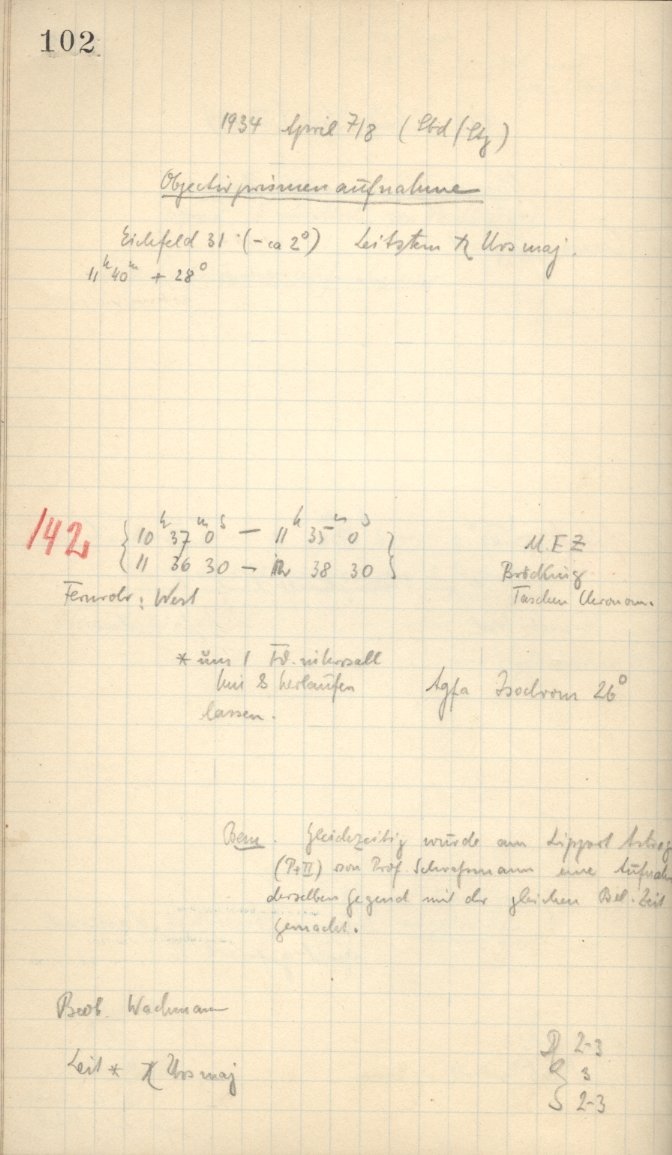 102
1934 April 7/8 (Sbd/Stg)
Objectivprismenaufnahme
Eichfeld 31 (- ca 2°) Leitstern χ Urs maj.
11h 40m + 28°
142 { 10h 37m 0s — 11h 35m 0s } M.E.Z
{ 11 36 30 — 12 38 30 } Bröcking
Fernrohr: West Taschen Chronom.
* um 1 Fd. intervall
hin & herlaufen Agfa Isochrom 26°
lassen.
Bem. Gleichzeitig wurde am Lippert Astrog
(P+II) von Prof Schwassmann eine Aufnah
derselben Gegend mit der gleichen Bel. Zeit
gemacht.
Beob. Wachmann
Leit * χ Urs maj
D 2-3
3
S 2-3